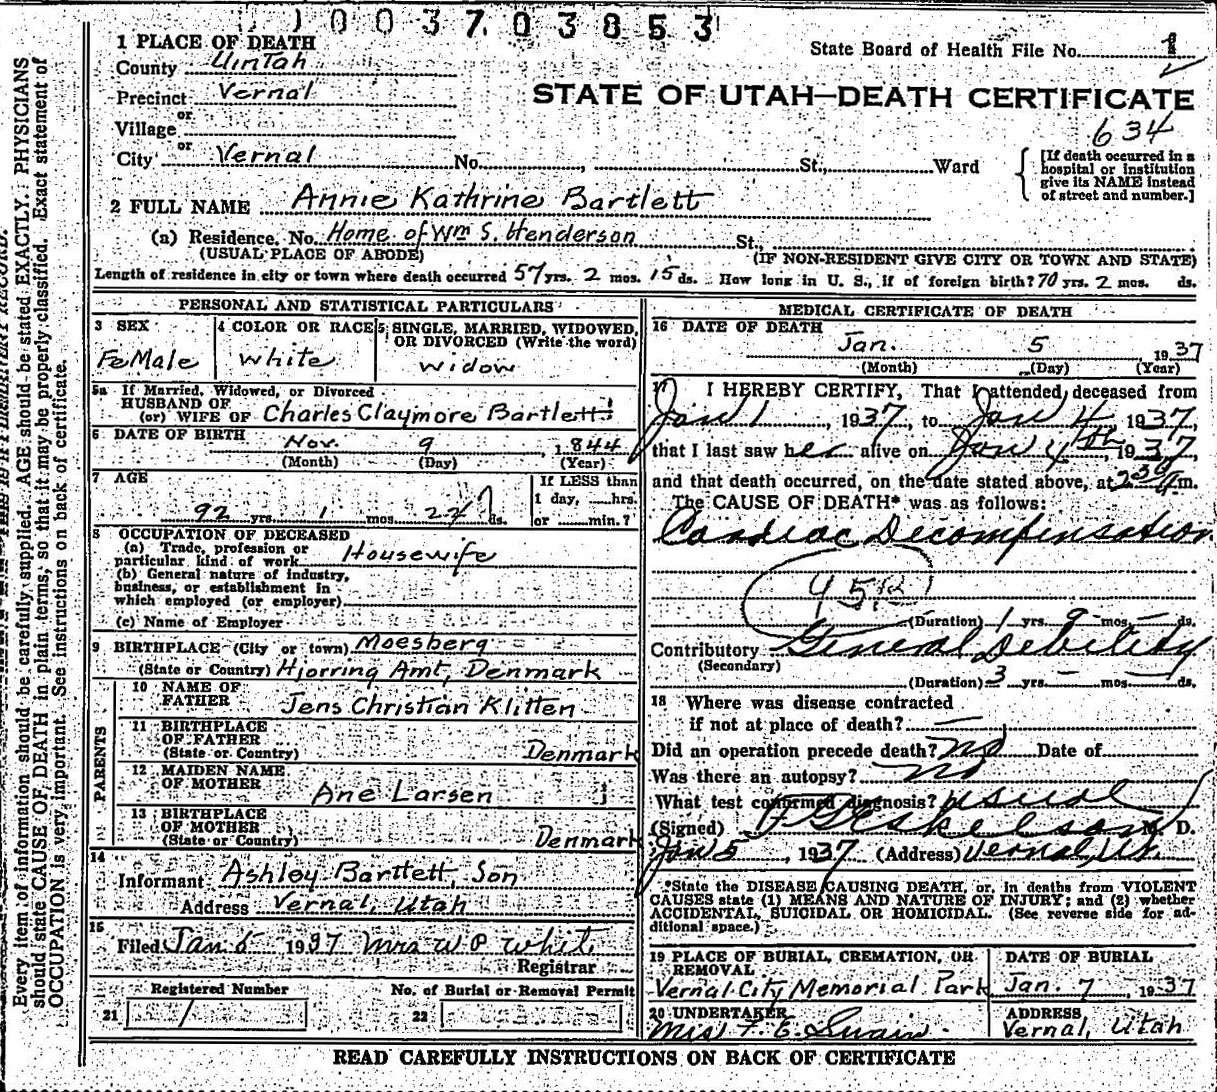 003703853
1 PLACE OF DEATH
State Board of Health File No. 1
County Uintah
STATE OF UTAH—DEATH CERTIFICATE
Precinct Vernal
or
Village
634
or
City Vernal No. , St., Ward
[If death occurred in a
hospital or institution
give its NAME instead
of street and number.]
2 FULL NAME Annie Kathrine Bartlett
(a) Residence. No. Home of Wm S. Henderson St.,
(USUAL PLACE OF ABODE) (IF NON-RESIDENT GIVE CITY OR TOWN AND STATE)
Length of residence in city or town where death occurred 57 yrs. 2 mos. 15 ds. How long in U. S., if of foreign birth? 70 yrs. 2 mos. ds.
PERSONAL AND STATISTICAL PARTICULARS
3 SEX
Female
4 COLOR OR RACE
White
5 SINGLE, MARRIED, WIDOWED,
OR DIVORCED (Write the word)
Widow
5a If Married, Widowed, or Divorced
HUSBAND OF
(or) WIFE OF Charles Claymore Bartlett
6 DATE OF BIRTH Nov. 9, 1844
(Month) (Day) (Year)
7 AGE
92 yrs. 1 mos. 27 ds.
If LESS than
1 day, hrs.
or min.?
8 OCCUPATION OF DECEASED
(a) Trade, profession or
particular kind of work Housewife
(b) General nature of industry,
business, or establishment in
which employed (or employer)
(c) Name of Employer
9 BIRTHPLACE (City or town) Moesberg
(State or Country) Hjorring Amt, Denmark
PARENTS
10 NAME OF
FATHER Jens Christian Klitten
11 BIRTHPLACE
OF FATHER
(State or Country) Denmark
12 MAIDEN NAME
OF MOTHER Ane Larsen
13 BIRTHPLACE
OF MOTHER
(State or Country) Denmark
14
Informant Ashley Bartlett, Son
Address Vernal, Utah
15
Filed Jan. 5 1937 Mrs W P White
Registrar
Registered Number No. of Burial or Removal Permit
21 1 22
MEDICAL CERTIFICATE OF DEATH
16 DATE OF DEATH
Jan. 5, 1937
(Month) (Day) (Year)
17 I HEREBY CERTIFY, That I attended deceased from
Jan 1, 1937, to Jan 4, 1937,
that I last saw her alive on Jan 4th, 1937,
and that death occurred, on the date stated above, at 2 30 A m.
The CAUSE OF DEATH* was as follows:
Cardiac Decompensation
95
(Duration) 1 yrs. 9 mos. — ds.
Contributory General Debility
(Secondary)
(Duration) 3 yrs. — mos. — ds.
18 Where was disease contracted
if not at place of death? —
Did an operation precede death? no Date of
Was there an autopsy? no
What test confirmed diagnosis? usual
(Signed) F G Eskelson M. D.
Jan 5, 1937 (Address) Vernal, Ut.
*State the DISEASE CAUSING DEATH, or, in deaths from VIOLENT
CAUSES state (1) MEANS AND NATURE OF INJURY; and (2) whether
ACCIDENTAL, SUICIDAL OR HOMICIDAL. (See reverse side for ad-
ditional space.)
19 PLACE OF BURIAL, CREMATION, OR
REMOVAL
Vernal City Memorial Park
DATE OF BURIAL
Jan. 7, 1937
20 UNDERTAKER
Mrs F. E. Swain.
ADDRESS
Vernal, Utah
READ CAREFULLY INSTRUCTIONS ON BACK OF CERTIFICATE
Every item of information should be carefully supplied. AGE should be stated EXACTLY. PHYSICIANS
should state CAUSE OF DEATH in plain terms, so that it may be properly classified. Exact statement of
OCCUPATION is very important. See instructions on back of certificate.